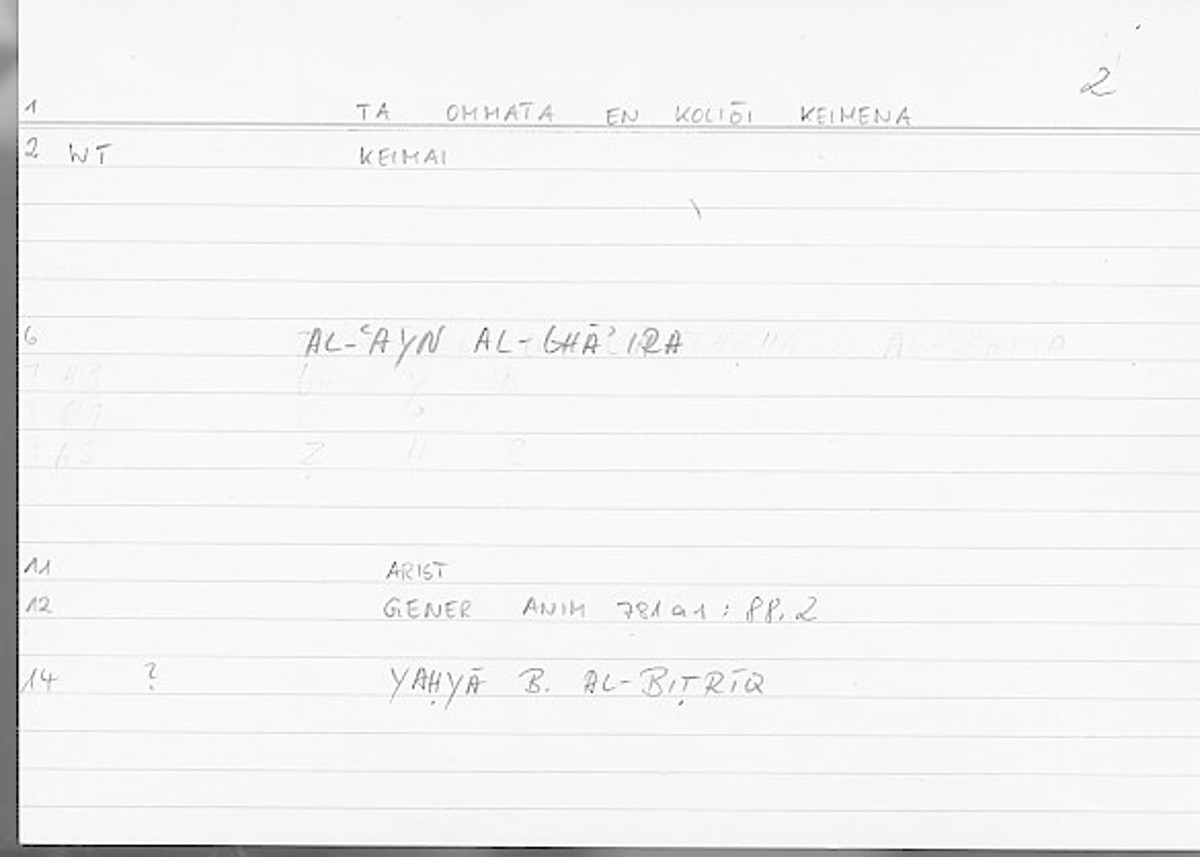 2
1 TA OMMATA EN KOLIŌI KEIMENA
2 WT KEIMAI
6 AL-ʿAYN AL-GHĀʾIRA
11 ARIST
12 GENER ANIM 781a1 : 88.2
14 ? YAḤYĀ B. AL-BIṬRĪQ